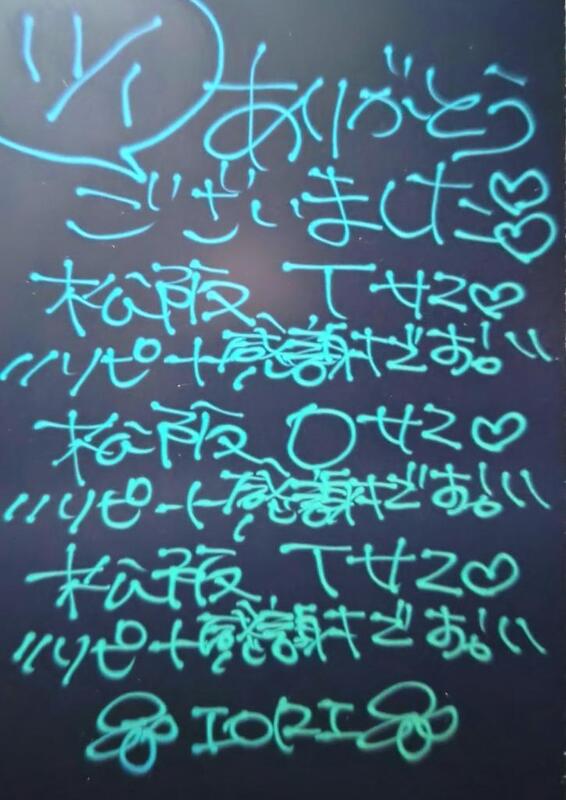 ツイ
ありがとう
ございました♡♡
松阪 Tサマ♡
〃リピート感謝です。〃
松阪 Oサマ♡
〃リピート感謝です。〃
松阪 Tサマ♡
〃リピート感謝です。〃
IORI